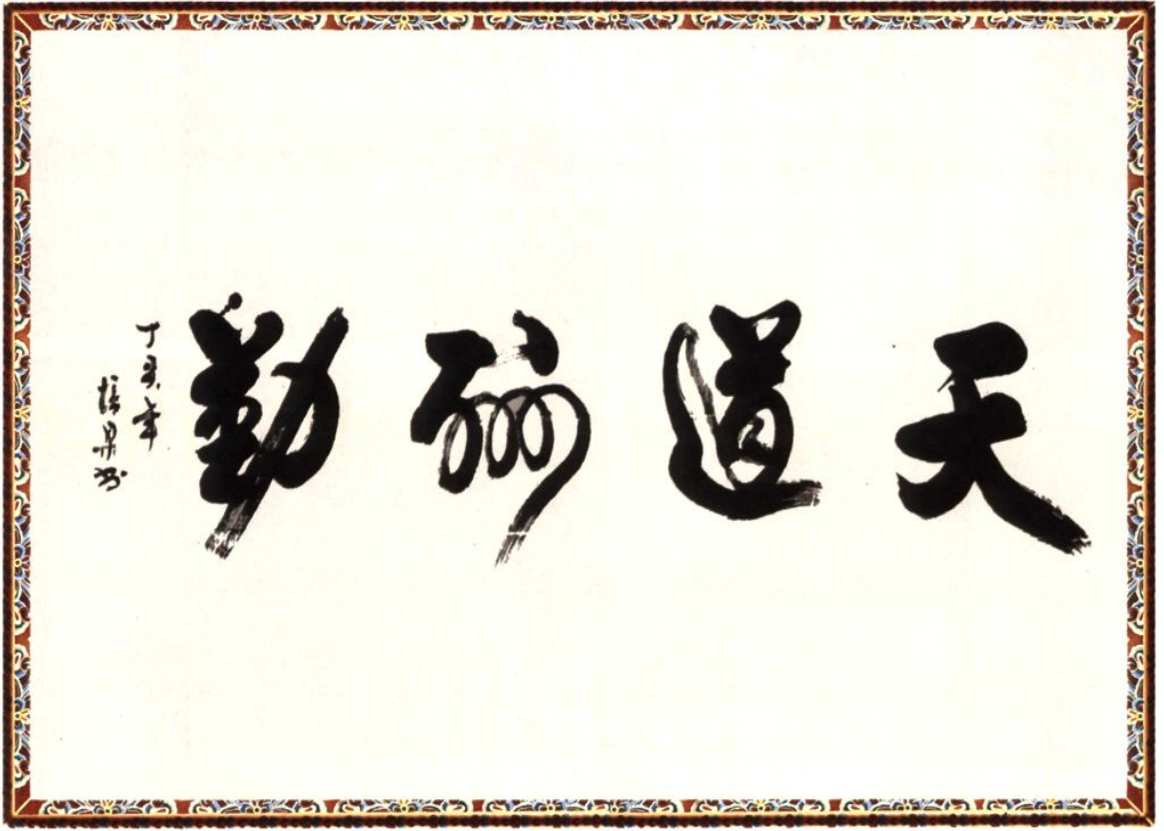 天道酬勤
丁亥年